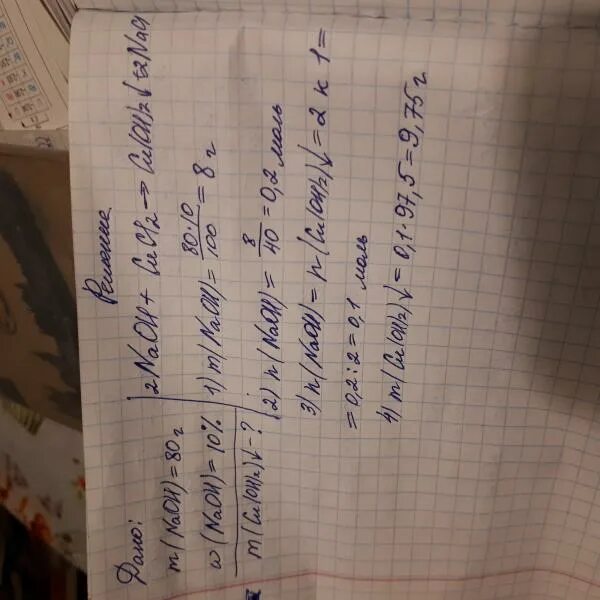 Дано:
m(NaOH)=80г
w(NaOH)=10%
m(Cu(OH)₂)↓-?
Решение
2NaOH+CuCl2→Cu(OH)₂↓+2NaCl
1) m(NaOH)=80·10/100=8г
2) n(NaOH)=8/40=0,2 моль
3) n(NaOH)=n(Cu(OH)₂)↓=2 к 1=
=0,2:2=0,1 моль
4) m(Cu(OH)₂)↓=0,1·97,5=9,75г